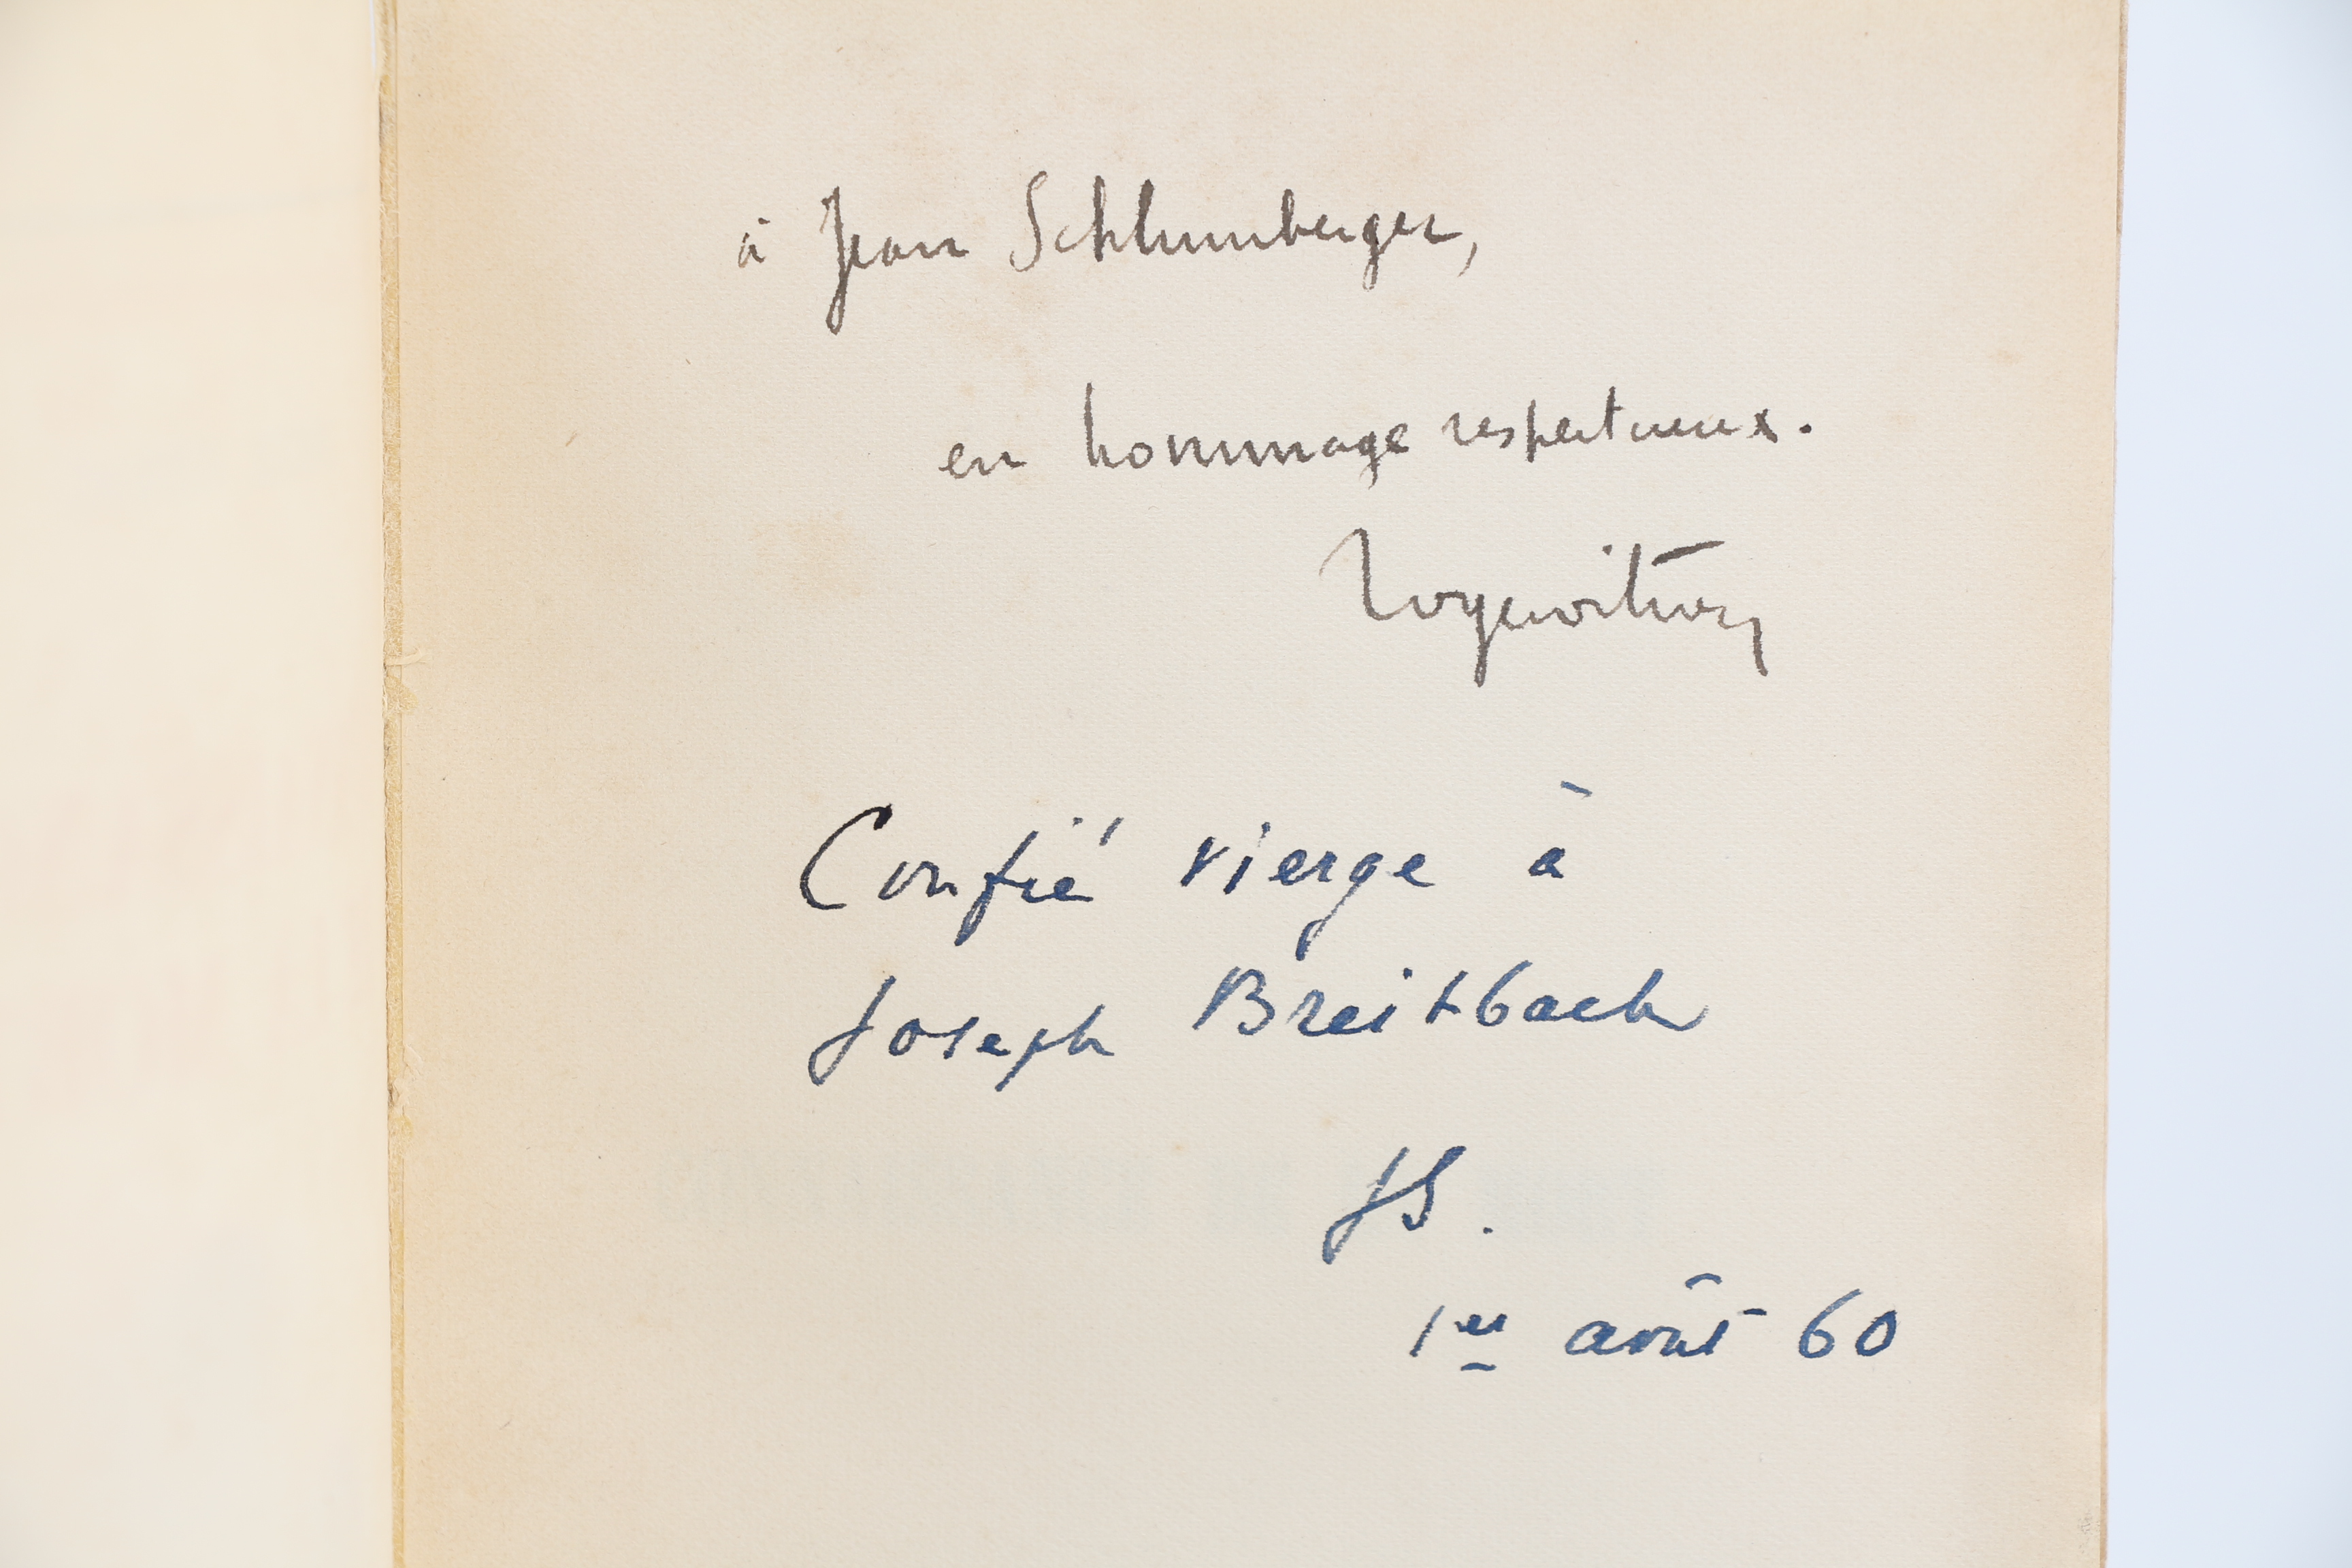 à Jean Schlumberger,
en hommage respectueux.
Roger Vitrac
Confié vierge à
Joseph Breitbach
JS.
1er août 60